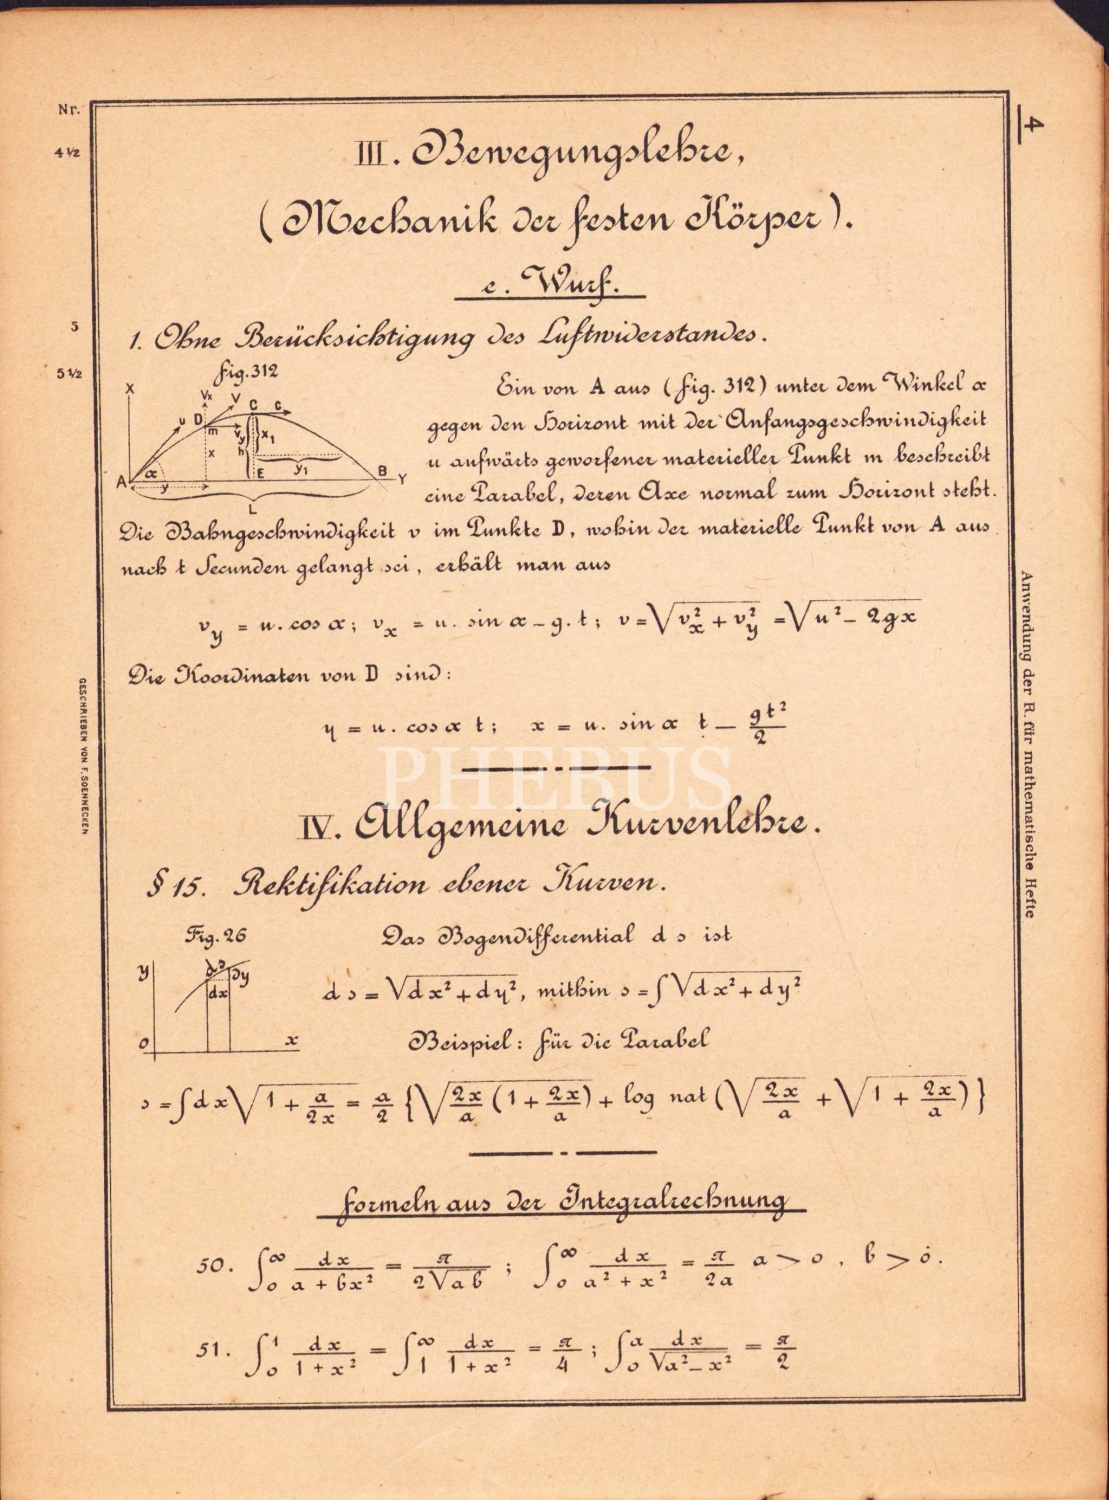 Nr.
4 ½
4
III. Bewegungslehre,
(Mechanik der festen Körper).
c. Wurf.
5
1. Ohne Berücksichtigung des Luftwiderstandes.
5 ½
Fig. 312
X Vx V C c
u D m Vy x1
x h
A α y E y1 B Y
L
Ein von A aus (Fig. 312) unter dem Winkel α
gegen den Horizont mit der Anfangsgeschwindigkeit
u aufwärts geworfener materieller Punkt m beschreibt
eine Parabel, deren Axe normal zum Horizont steht.
Die Bahngeschwindigkeit v im Punkte D, wohin der materielle Punkt von A aus
nach t Secunden gelangt sei, erhält man aus
v_y = u. cos α; v_x = u. sin α – g. t; v = √(v_x² + v_y²) = √(u² – 2gx)
Die Koordinaten von D sind:
y = u. cos α t; x = u. sin α t – gt²/2
PHEBUS
IV. Allgemeine Kurvenlehre.
§ 15. Rektifikation ebener Kurven.
Fig. 26
y ds dy
dx
o x
Das Bogendifferential ds ist
ds = √(dx² + dy²), mithin s = ∫√(dx² + dy²)
Beispiel: Für die Parabel
s = ∫dx√(1 + a/2x) = a/2 {√(2x/a (1 + 2x/a)) + log nat (√(2x/a) + √(1 + 2x/a))}
Formeln aus der Integralrechnung
50. ∫₀^∞ dx/(a + bx²) = π/(2√ab) ; ∫₀^∞ dx/(a² + x²) = π/2a a > o, b > o.
51. ∫₀¹ dx/(1 + x²) = ∫₁^∞ dx/(1 + x²) = π/4 ; ∫₀^a dx/√(a² – x²) = π/2
GESCHRIEBEN VON F. SOENNECKEN
Anwendung der R. für mathematische Hefte